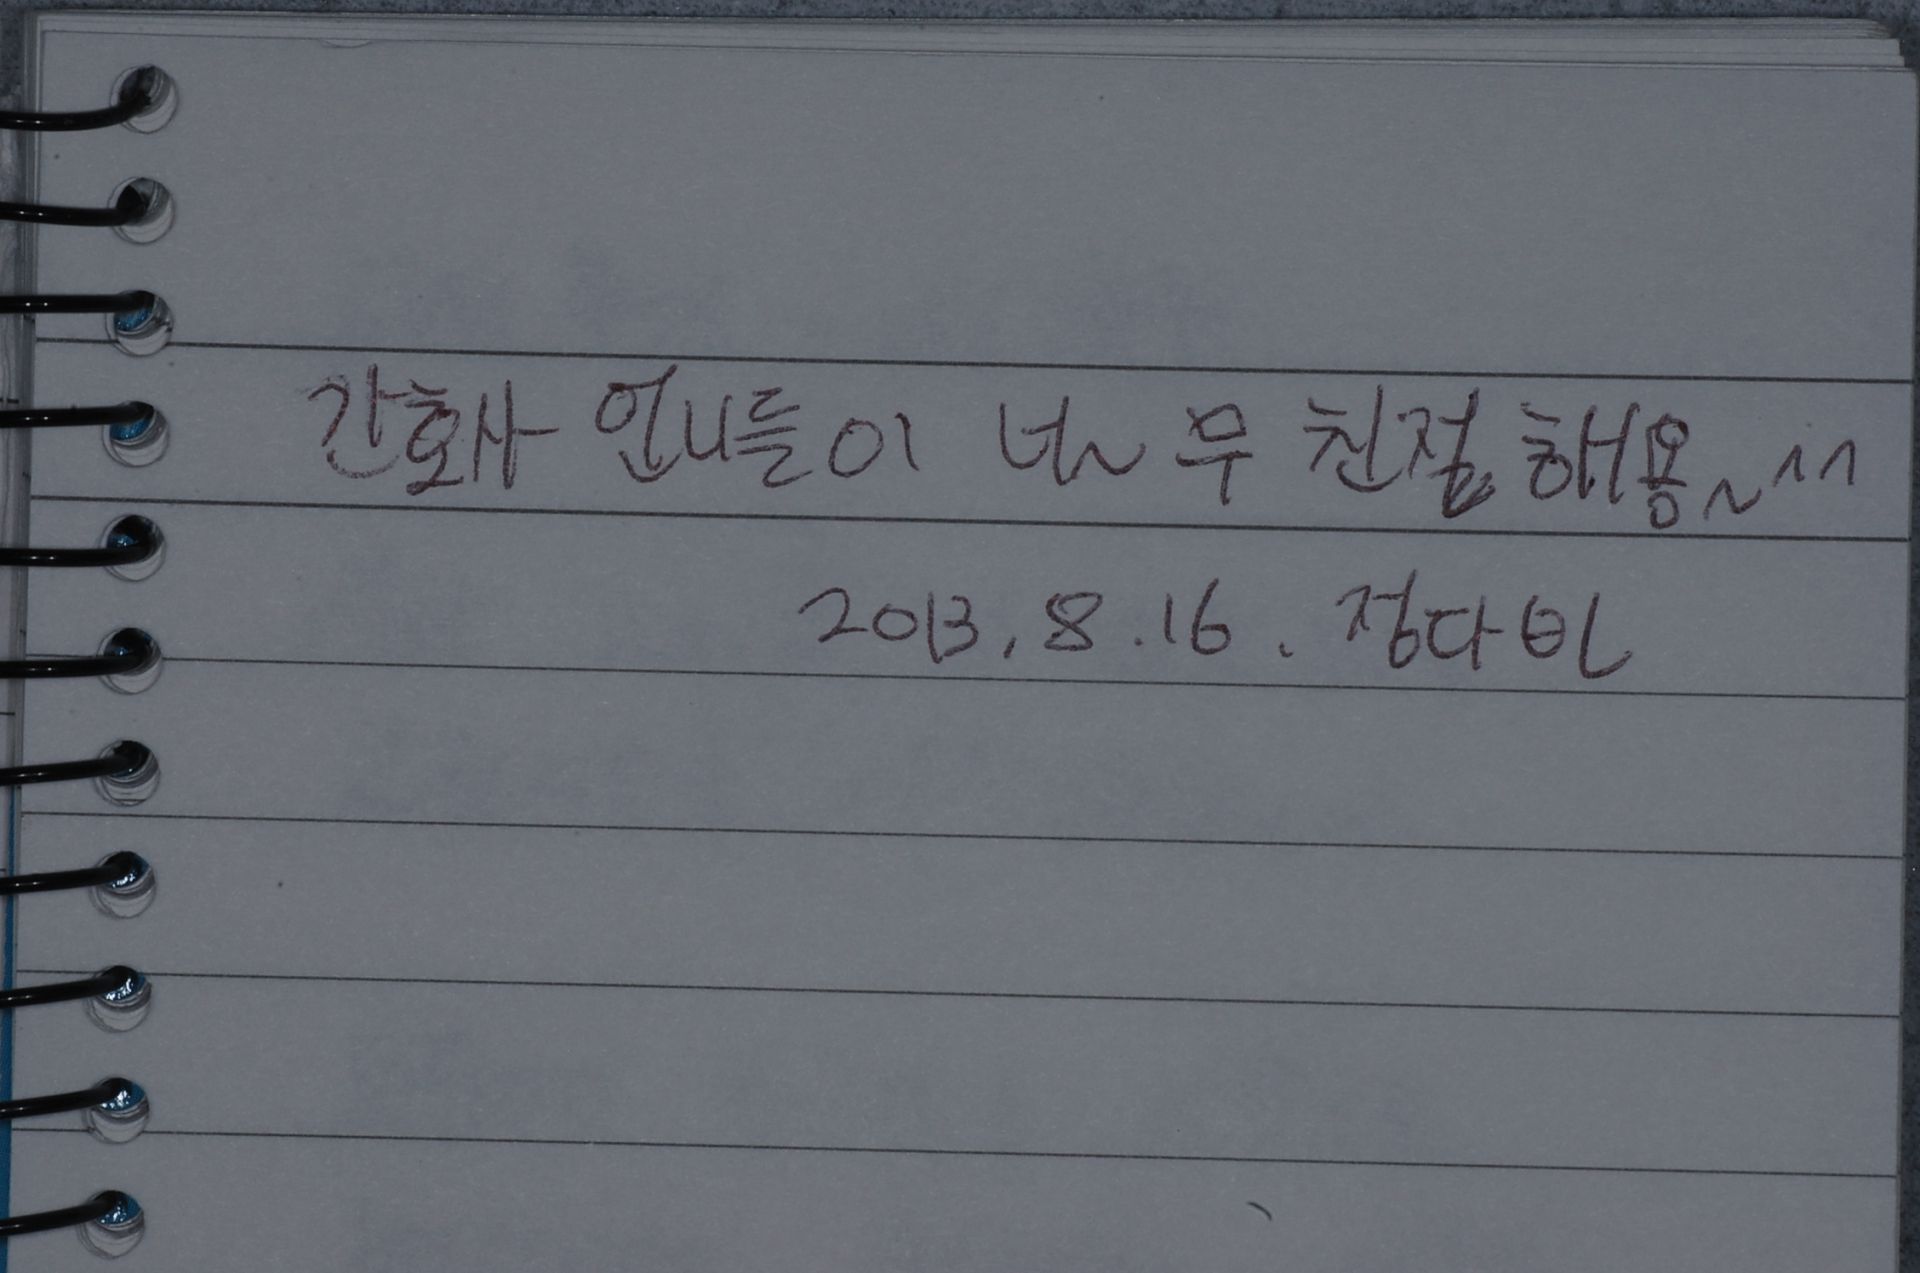 간호사 언니들이 너~무 친절해용~^^
2013. 8. 16. 정다빈